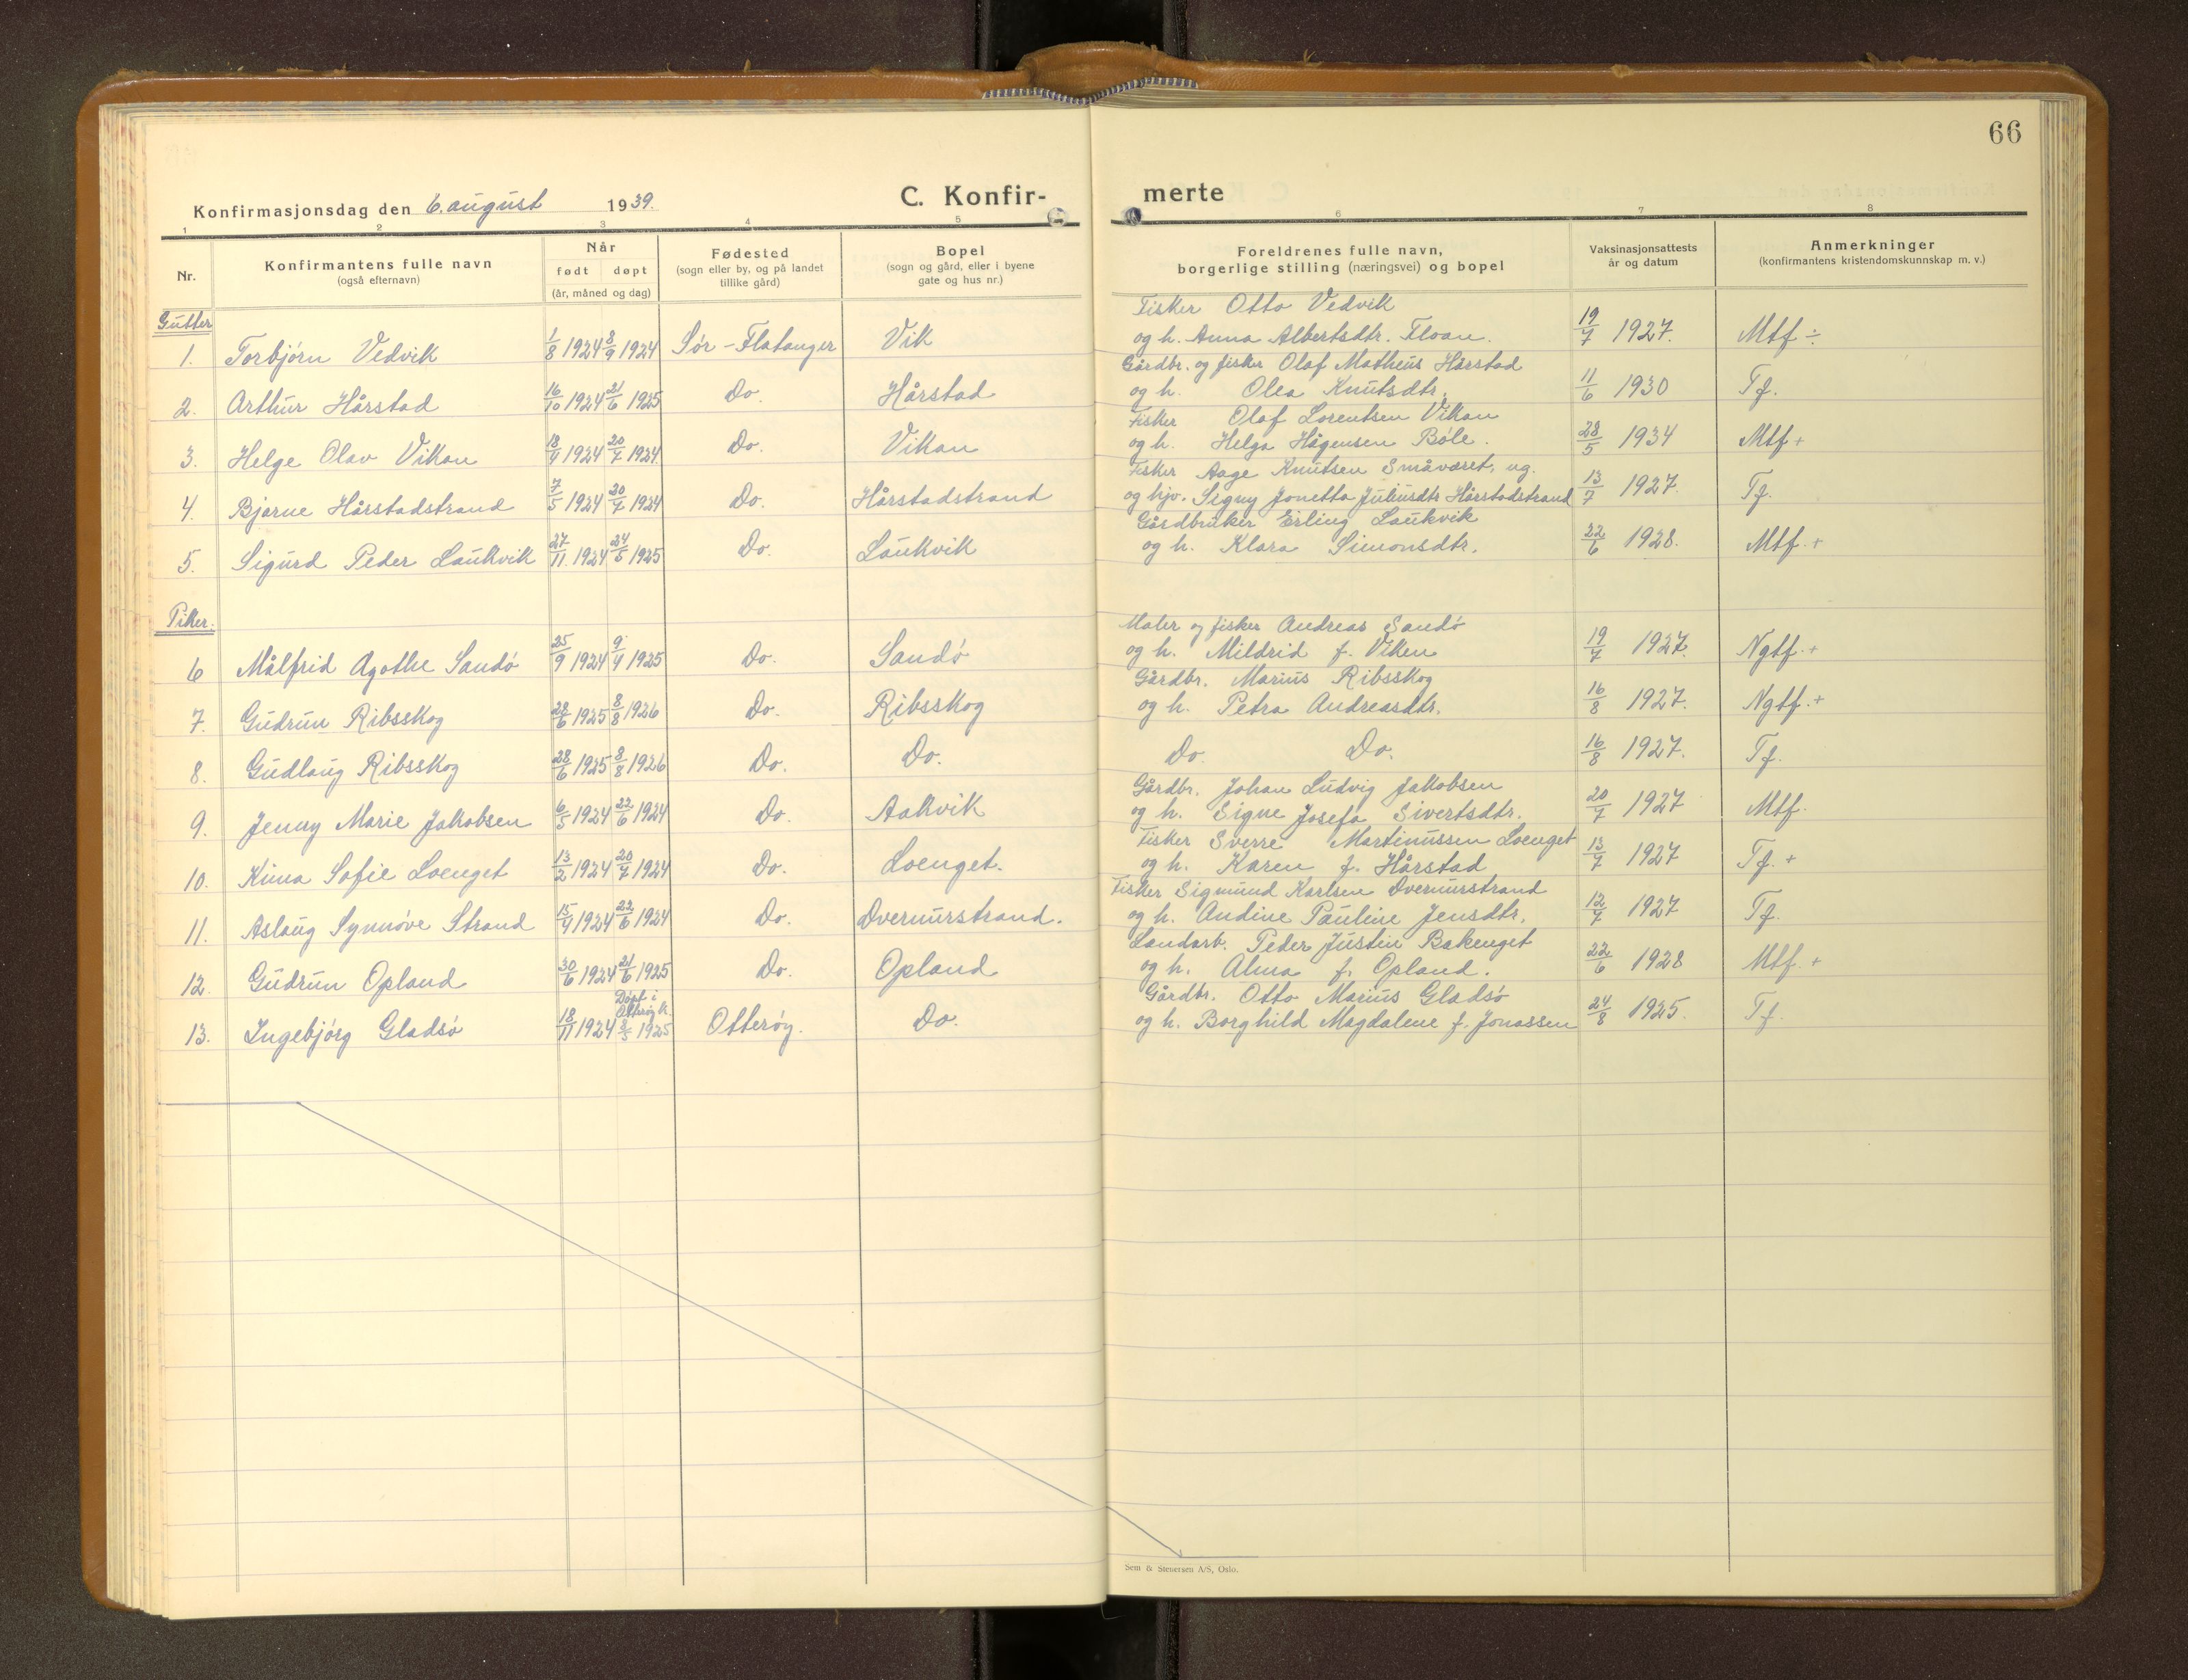 66
Konfirmasjonsdag den 6. august 1939.
C. Konfir-
merte
1 2 3 4 5
6 7 8
Nr.
Konfirmantens fulle navn
(også efternavn)
Når
født døpt
(år, måned og dag)
Fødested
(sogn eller by, og på landet
tillike gård)
Bopel
(sogn og gård, eller i byene
gate og hus nr.)
Foreldrenes fulle navn,
borgerlige stilling (næringsvei) og bopel
Vaksinasjonsattests
år og datum
Anmerkninger
(konfirmantens kristendomskunnskap m. v.)
Gutter
Fisker Otto Vedvik
1. Torbjørn Vedvik 1/8 1924 8/9 1924 Sør-Flatanger Vik og h. Anna Albertsdtr. Floan. 19/7 1927. Mtf ÷
Gårdbr. og fisker Olaf Matheus Hårstad
2. Arthur Hårstad 16/10 1924 21/6 1925 Do. Hårstad og h. Olea Knutsdtr. 11/6 1930 Tf.
Fisker Olaf Lorentsen Vikan
3. Helge Olav Vikan 18/4 1924 20/7 1924. Do. Vikan og h. Helga Hågensen Bøle. 28/5 1934 Mtf +
Fisker Aage Knutsen Småværet, ug.
4. Bjarne Hårstadstrand 7/5 1924 20/7 1924 Do. Hårstadstrand og hjv. Signy Jonetta Juliusdtr Hårstadstrand 13/7 1927. Tf.
Gårdbruker Erling Laukvik
5. Sigurd Peder Laukvik 27/11. 1924 24/5 1925 Do. Laukvik og h. Klara Simonsdtr. 22/6 1928. Mtf. +
Piker.
Maler og fisker Andreas Sandø
6 Målfrid Agathe Sandø 25/9 1924 9/4 1925 Do. Sandø og h. Mildrid f. Viken 19/7 1927. Ngtf. +
Gårdbr. Marius Ribsskog
7. Gudrun Ribsskog 28/6 1925 8/8 1926 Do. Ribsskog og h. Petra Andreasdtr. 16/8 1927. Ngtf. +
8. Gudlaug Ribsskog 28/6 1925 8/8 1926 Do. Do. Do. Do. 16/8 1927. Tf.
Gårdbr. Johan Ludvig Jakobsen
9. Jenny Marie Jakobsen 6/5 1924 22/6 1924 Do. Aakvik og h. Signe Josefa Sivertsdtr. 20/7 1927 Mtf.
Fisker Sverre Martinussen Loenget
10. Kima Sofie Loenget 13/2 1924 20/7 1924 Do. Loenget. og h. Karen f. Hårstad 13/7 1927 Tf. +
Fisker Sigmund Karlsen Dvernurstrand
11. Aslaug Synnøve Strand 15/4 1924 22/6 1924 Do. Dvernurstrand. og h. Andine Pauline Jensdtr. 12/7 1927 Tf.
Landarb. Peder Justin Bakenget
12. Gudrun Opland 30/6 1924 21/6 1925 Do. Opland og h. Alma f. Opland. 22/6 1928 Mtf. +
Døpt i Otterøy k. Gårdbr. Otto Marius Gladsø
13. Ingebjørg Gladsø 18/11 1924 3/5 1925 Otterøy. Do. og h. Borghild Magdalene f. Jonassen 24/8 1925. Tf.
Sem & Stenersen A/S, Oslo.